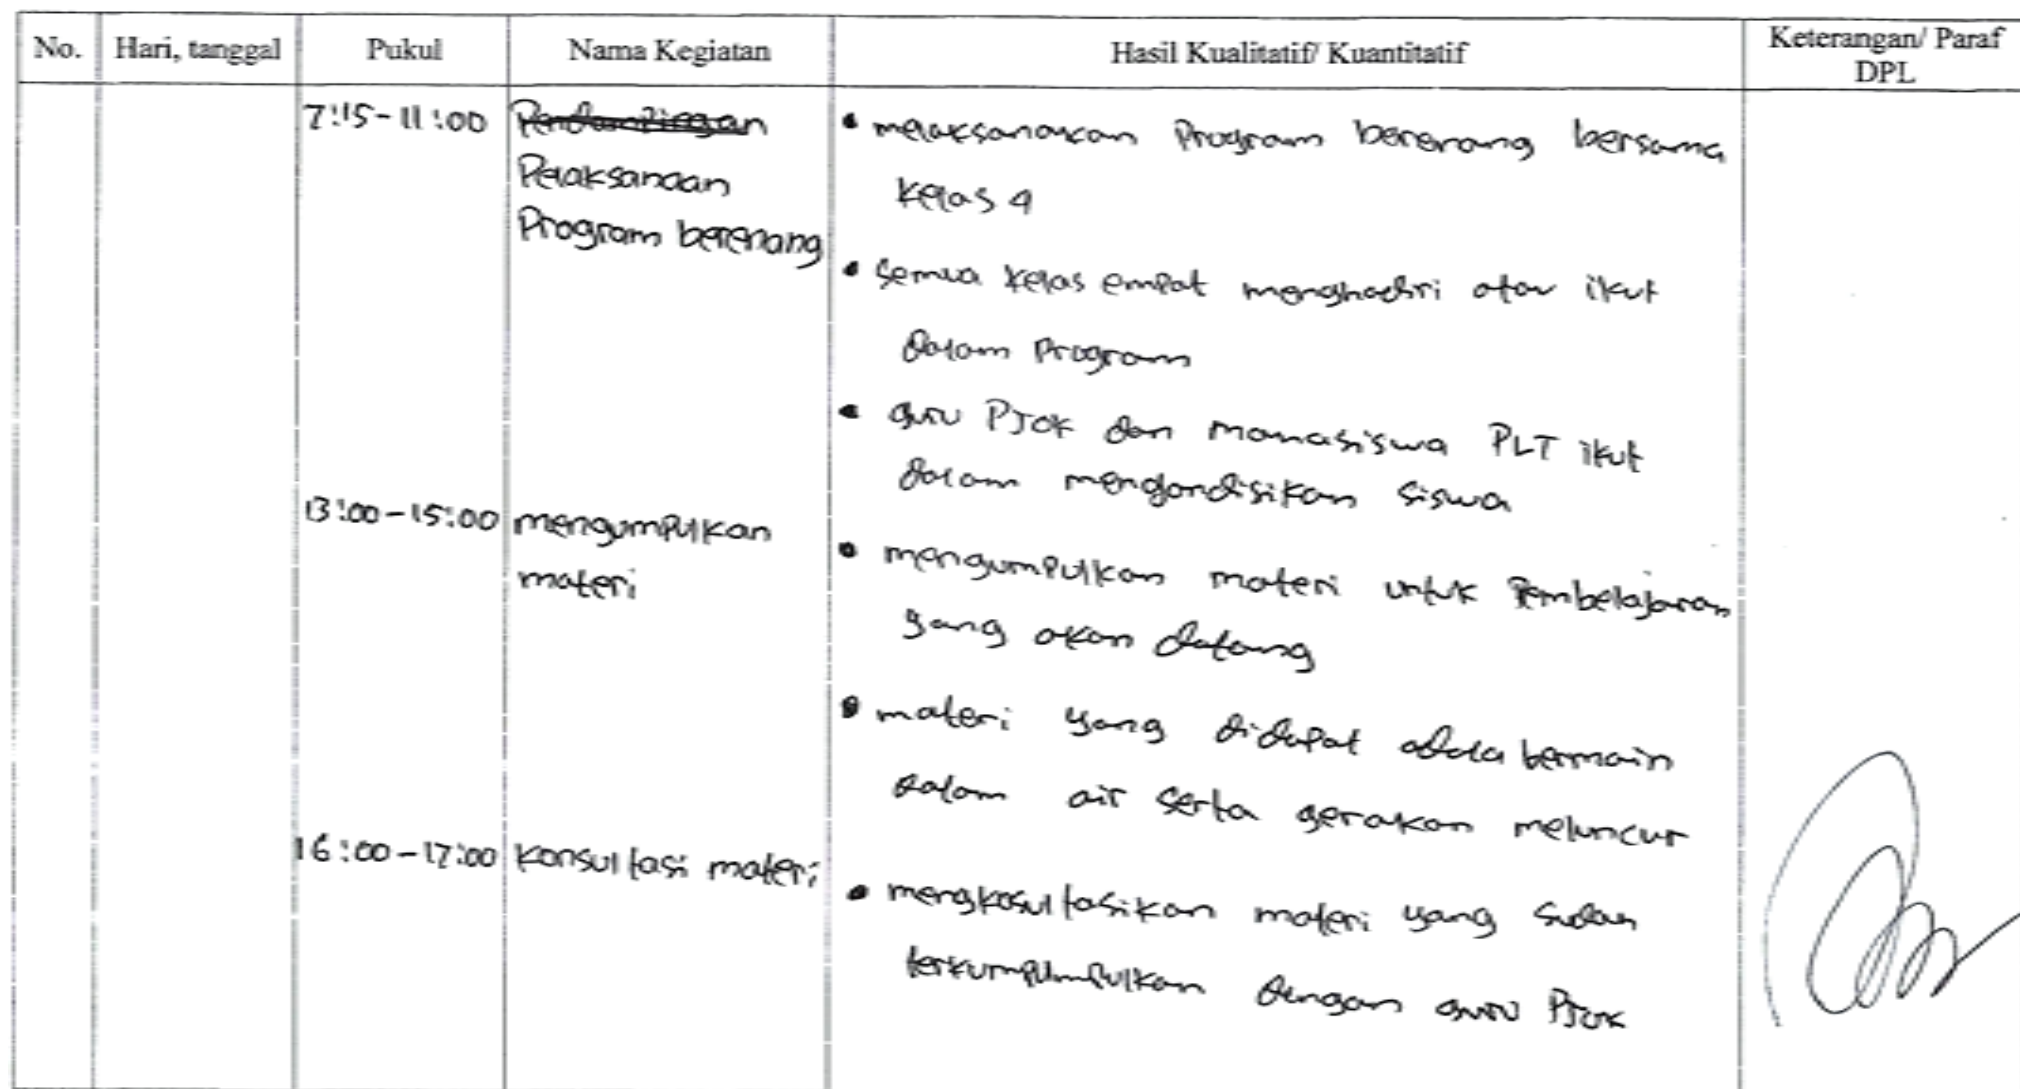 No. Hari, tanggal Pukul Nama Kegiatan Hasil Kualitatif/ Kuantitatif Keterangan/ Paraf DPL
7:15-11:00 Pendampingan
Pelaksanaan
Program berenang
• melaksanakan Program berenang bersama
kelas 4
• semua kelas empat menghadiri atau ikut
dalam Program
• guru PJOK dan mahasiswa PLT ikut
dalam mengondisikan siswa
13:00-15:00 mengumpulkan
materi
• mengumpulkan materi untuk Pembelajaran
yang akan datang
• materi yang didapat adala bermain
dalam air serta gerakan meluncur
16:00-17:00 konsultasi materi
• mengkosultasikan materi yang sudah
terkumpulmpulkan dengan guru PJOK